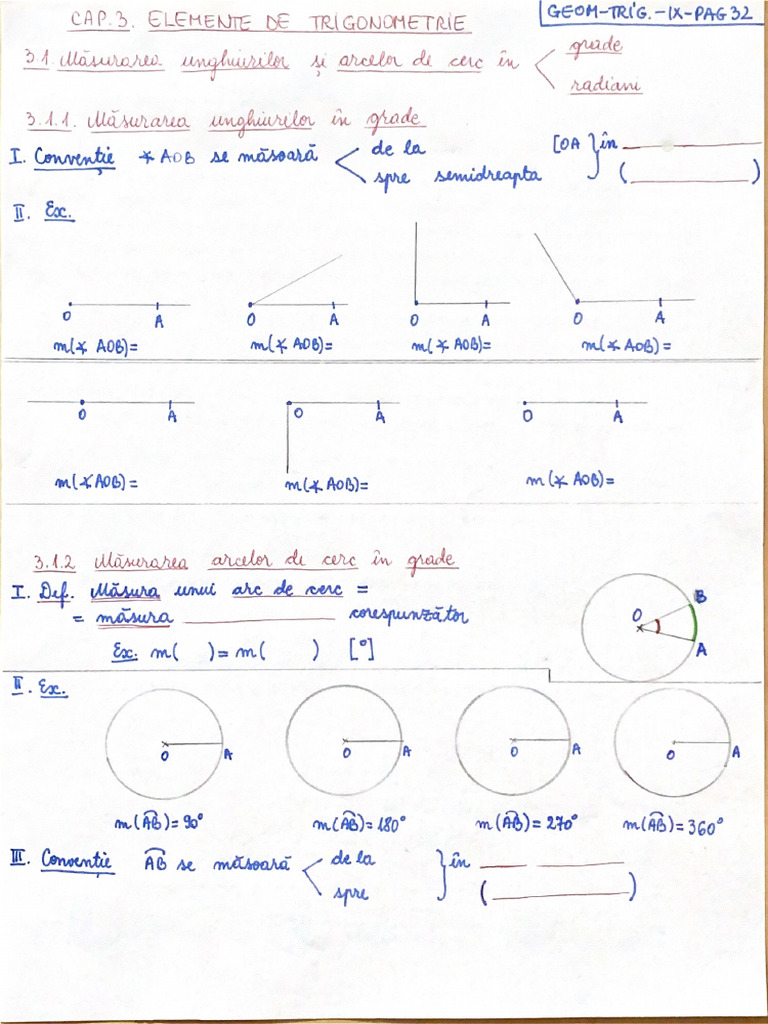 CAP.3. ELEMENTE DE TRIGONOMETRIE
GEOM-TRIG.-IX-PAG 32
3.1. Măsurarea unghiurilor și arcelor de cerc în < grade
radiani
3.1.1. Măsurarea unghiurilor în grade
I. Convenție ∢ AOB se măsoară < de la [OA } în
spre semidreapta ( )
II. Ex.
O A O A O A O A
m(∢ AOB)= m(∢ AOB)= m(∢ AOB)= m(∢ AOB)=
O A O A O A
m(∢ AOB)= m(∢ AOB)= m(∢ AOB)=
3.1.2 Măsurarea arcelor de cerc în grade
I. Def. Măsura unui arc de cerc =
= măsura corespunzător
Ex. m( )=m( ) [°]
O B
A
II. Ex.
O A O A O A O A
m(AB)=90° m(AB)=180° m(AB)=270° m(AB)=360°
III. Convenție AB se măsoară < de la } în
spre ( )